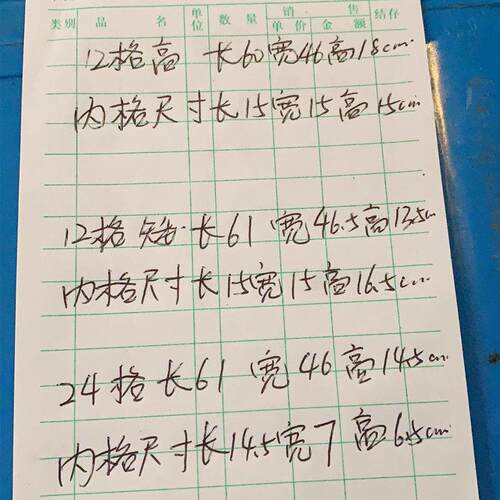 类别 品名 单位 数量 销售 单价 金额 结存
12格高 长60宽46高18cm
内格尺寸长15宽15高15cm
12格矮 长61宽46.5高13.5cm
内格尺寸长15宽15高16.5cm
24格长61宽46高14.5cm
内格尺寸长14.5宽7高6.5cm